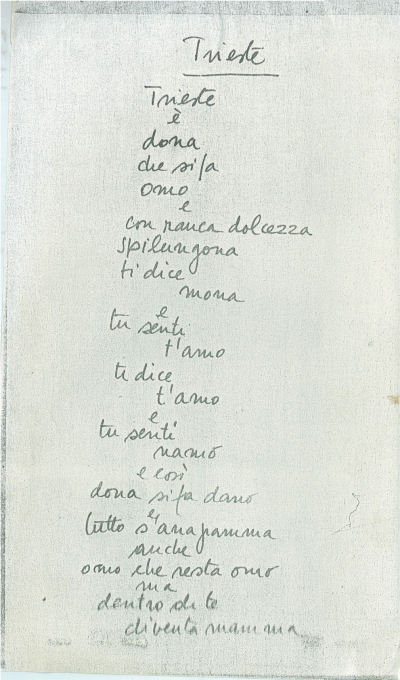 Trieste
Trieste
è
dona
che si fa
omo
e
con rauca dolcezza
spilungona
ti dice
mona
e
tu senti
t'amo
ti dice
t'amo
e
tu senti
namo
e così
dona si fa dano
e
tutto s'anagramma
anche
omo che resta omo
ma
dentro di te
diventa mamma